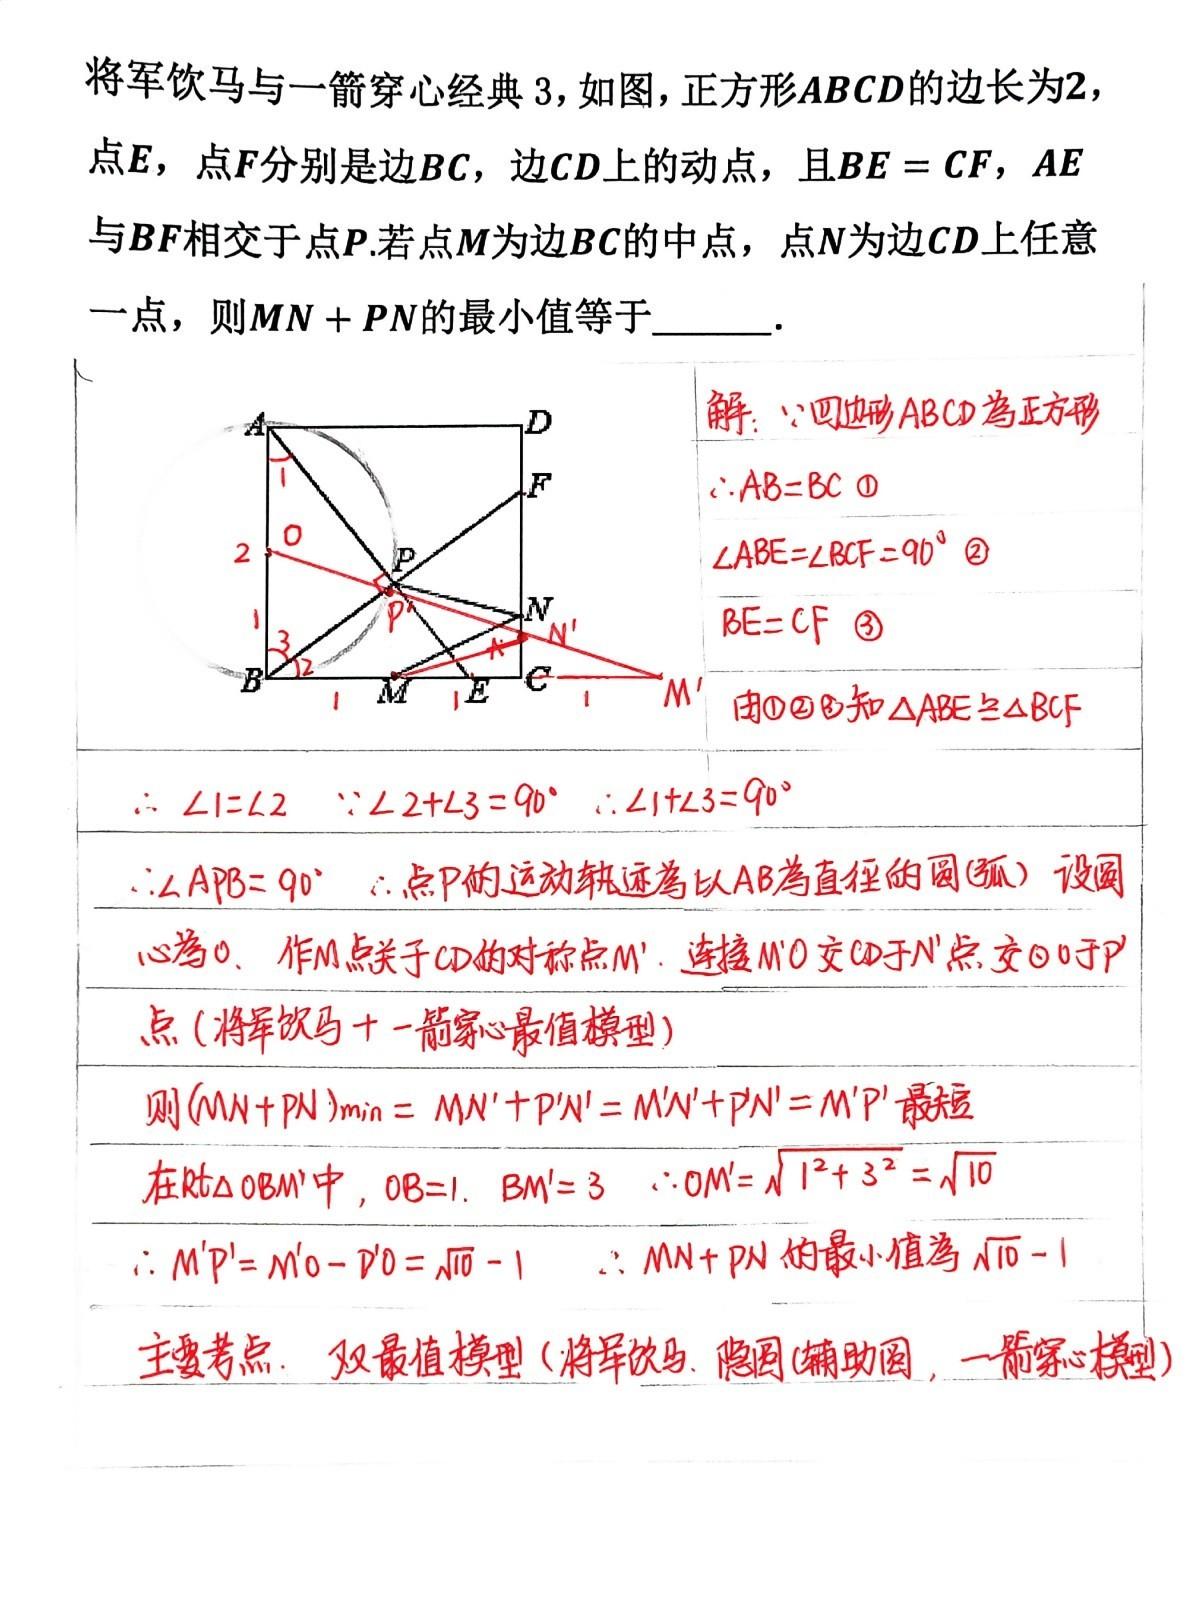 将军饮马与一箭穿心经典 3，如图，正方形ABCD的边长为2，
点E，点F分别是边BC，边CD上的动点，且BE = CF，AE
与BF相交于点P.若点M为边BC的中点，点N为边CD上任意
一点，则MN + PN的最小值等于______.
A D
1 F
2 O
P
P' N N'
1 3 2
B M E C M'
1 1 1
解：∵四边形ABCD為正方形
∴AB=BC ①
∠ABE=∠BCF=90° ②
BE=CF ③
由①②③知△ABE≌△BCF
∴ ∠1=∠2 ∵∠2+∠3=90° ∴∠1+∠3=90°
∴∠APB=90° ∴点P的运动轨迹為以AB為直径的圆(弧) 设圆
心為O、作M点关于CD的对称点M'. 连接M'O交CD于N'点 交⊙O于P'
点(将军饮马+一箭穿心最值模型)
则(MN+PN)min= MN'+P'N'=M'N'+P'N'=M'P'最短
在Rt△OBM'中，OB=1. BM'=3 ∴OM'=√1²+3²=√10
∴M'P'=M'O-P'O=√10-1 ∴MN+PN的最小值為√10-1
主要考点. 双最值模型(将军饮马. 隐圆(辅助圆，一箭穿心模型)